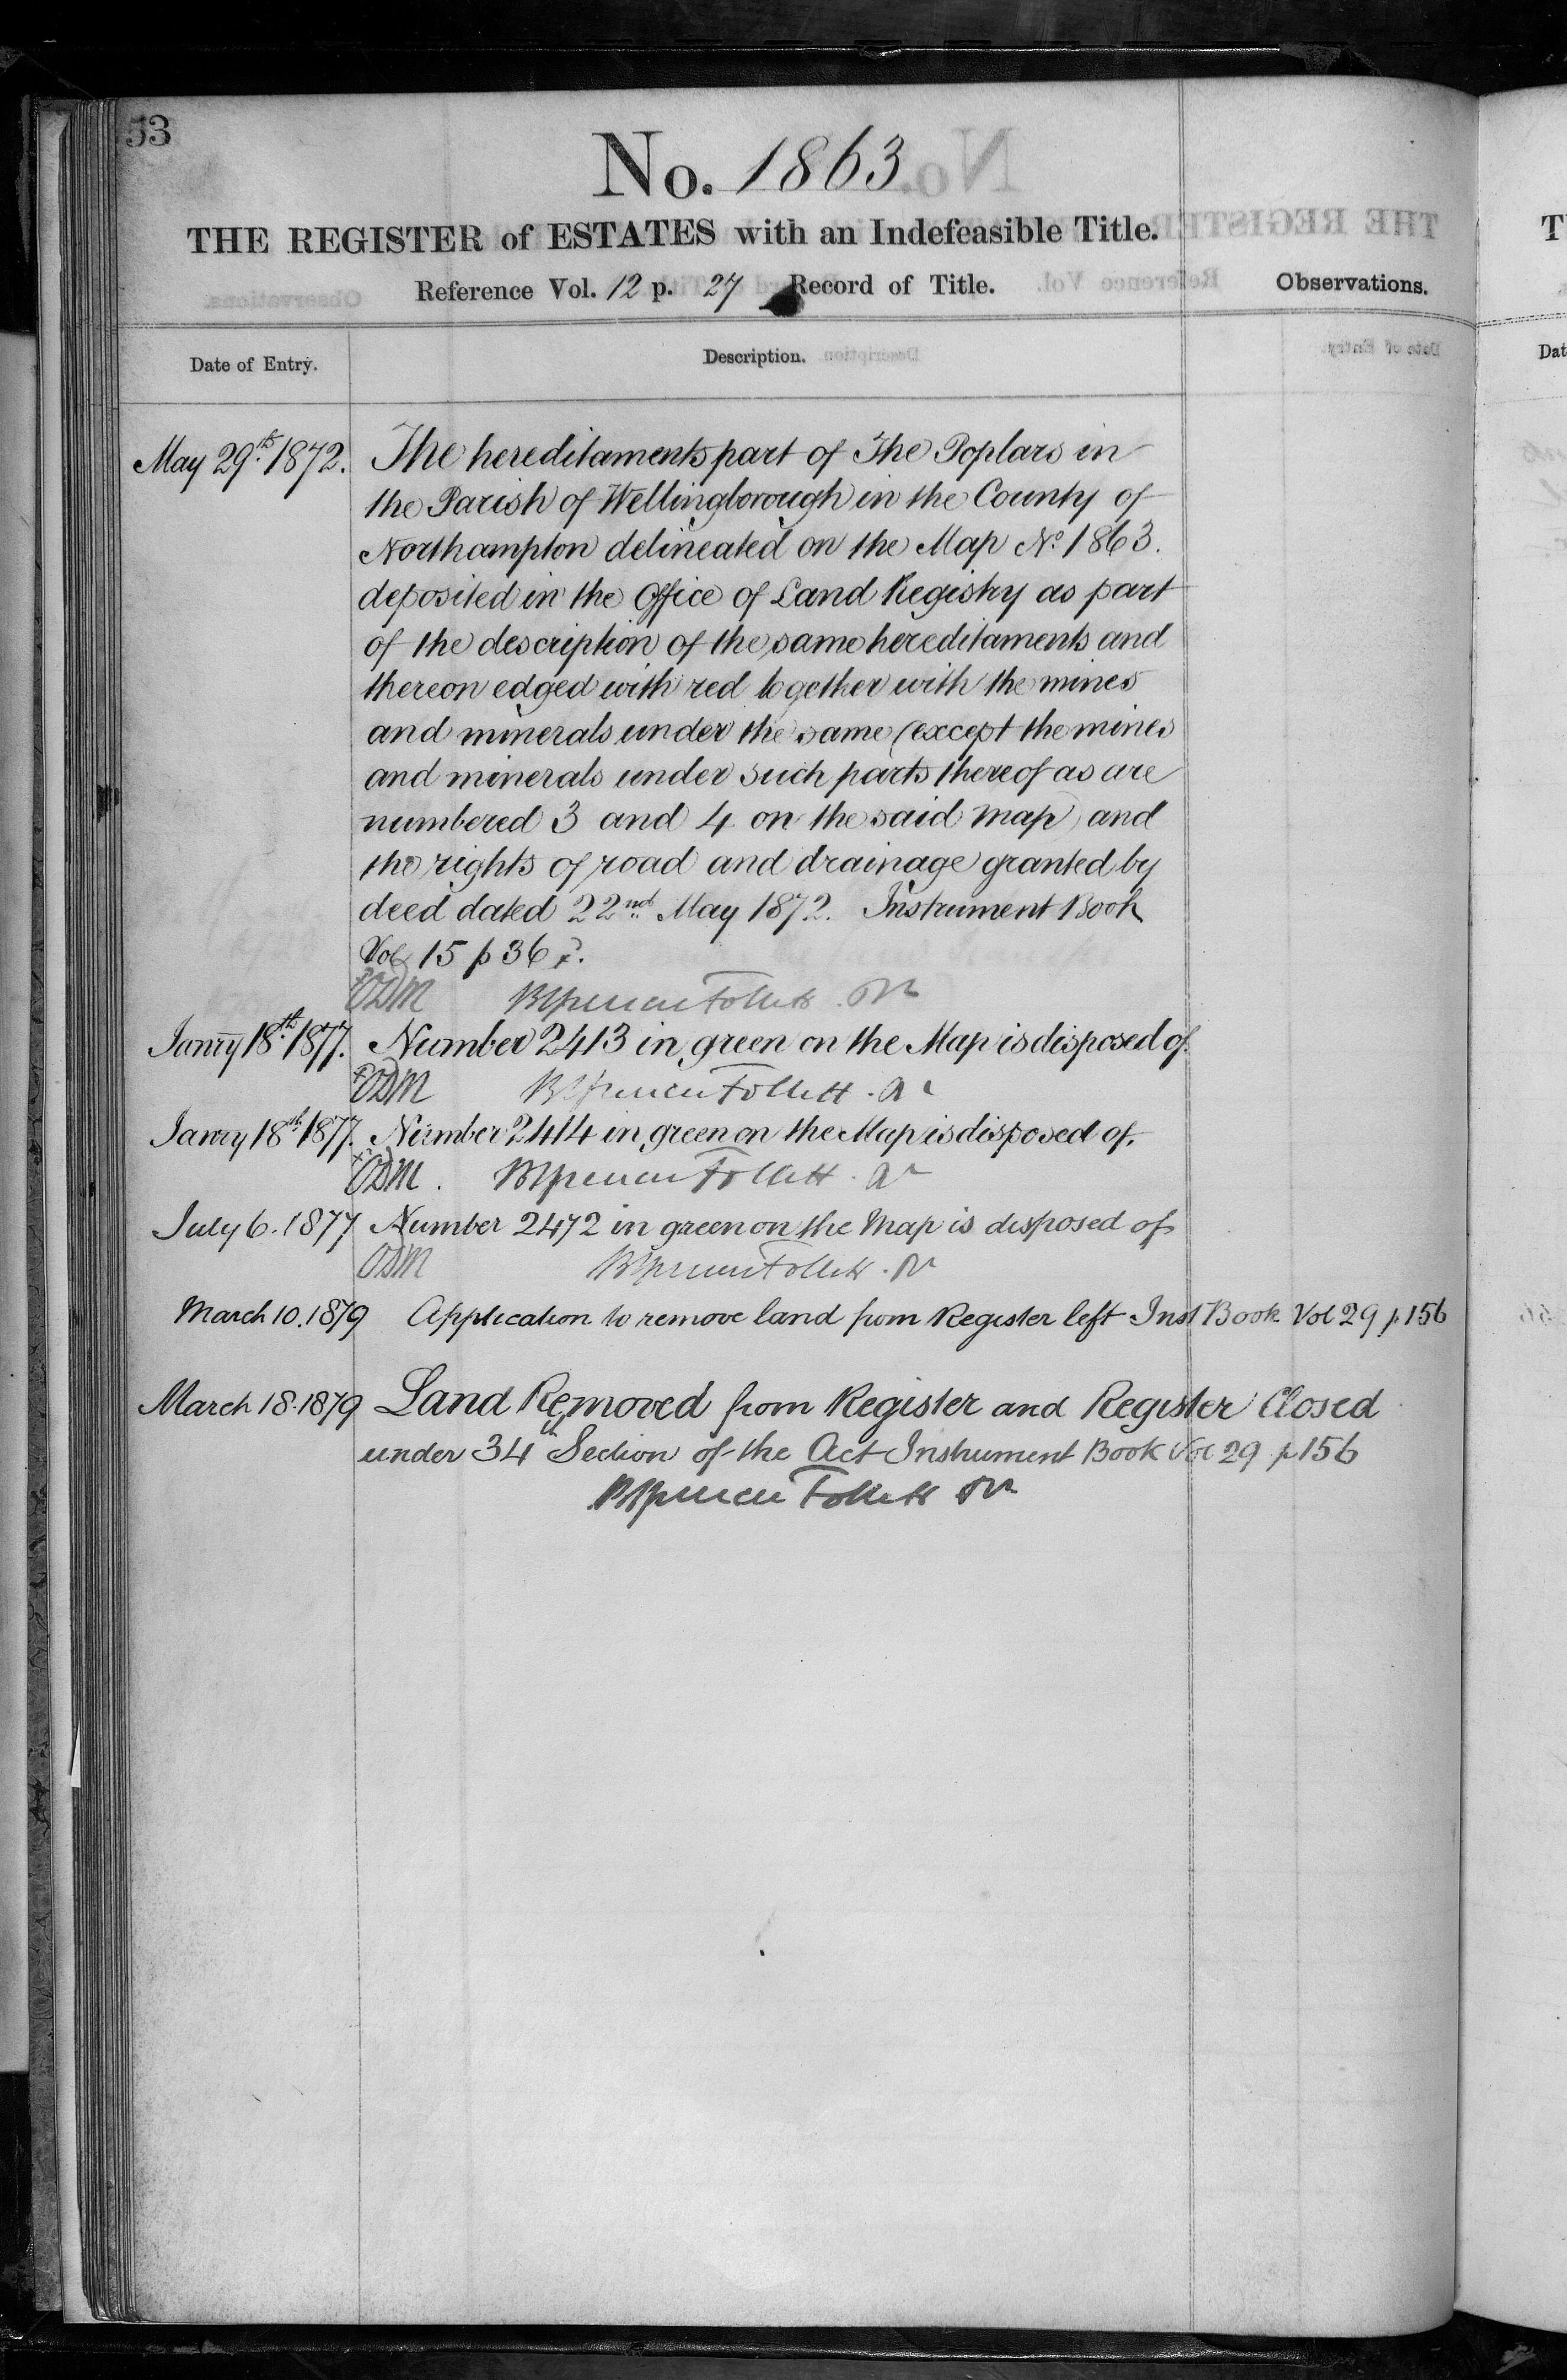 53
No. 1863
THE REGISTER of ESTATES with an Indefeasible Title.
Reference Vol. 12 p. 27 Record of Title.
Observations.
Date of Entry.
Description.
May 29th 1872. The hereditaments part of The Poplars in
the Parish of Wellingborough in the County of
Northampton delineated on the Map No 1863.
deposited in the Office of Land Registry as part
of the description of the same hereditaments and
thereon edged with red together with the mines
and minerals under the same (except the mines
and minerals under such parts thereof as are
numbered 3 and 4 on the said map) and
the rights of road and drainage granted by
deed dated 22nd May 1872. Instrument Book
Vol 15 p 36
Brent Spencer Follett
Janry 18th 1877. Number 2413 in green on the Map is disposed of.
Brent Spencer Follett
Janry 18th 1877. Number 2414 in green on the Map is disposed of.
Brent Spencer Follett
July 6. 1877 Number 2472 in green on the Map is disposed of
Brent Spencer Follett
March 10. 1879 Application to remove land from Register left Inst Book Vol 29 p 156
March 18. 1879 Land Removed from Register and Register Closed
under 34th Section of the Act Instrument Book Vol 29 p 156
Brent Spencer Follett